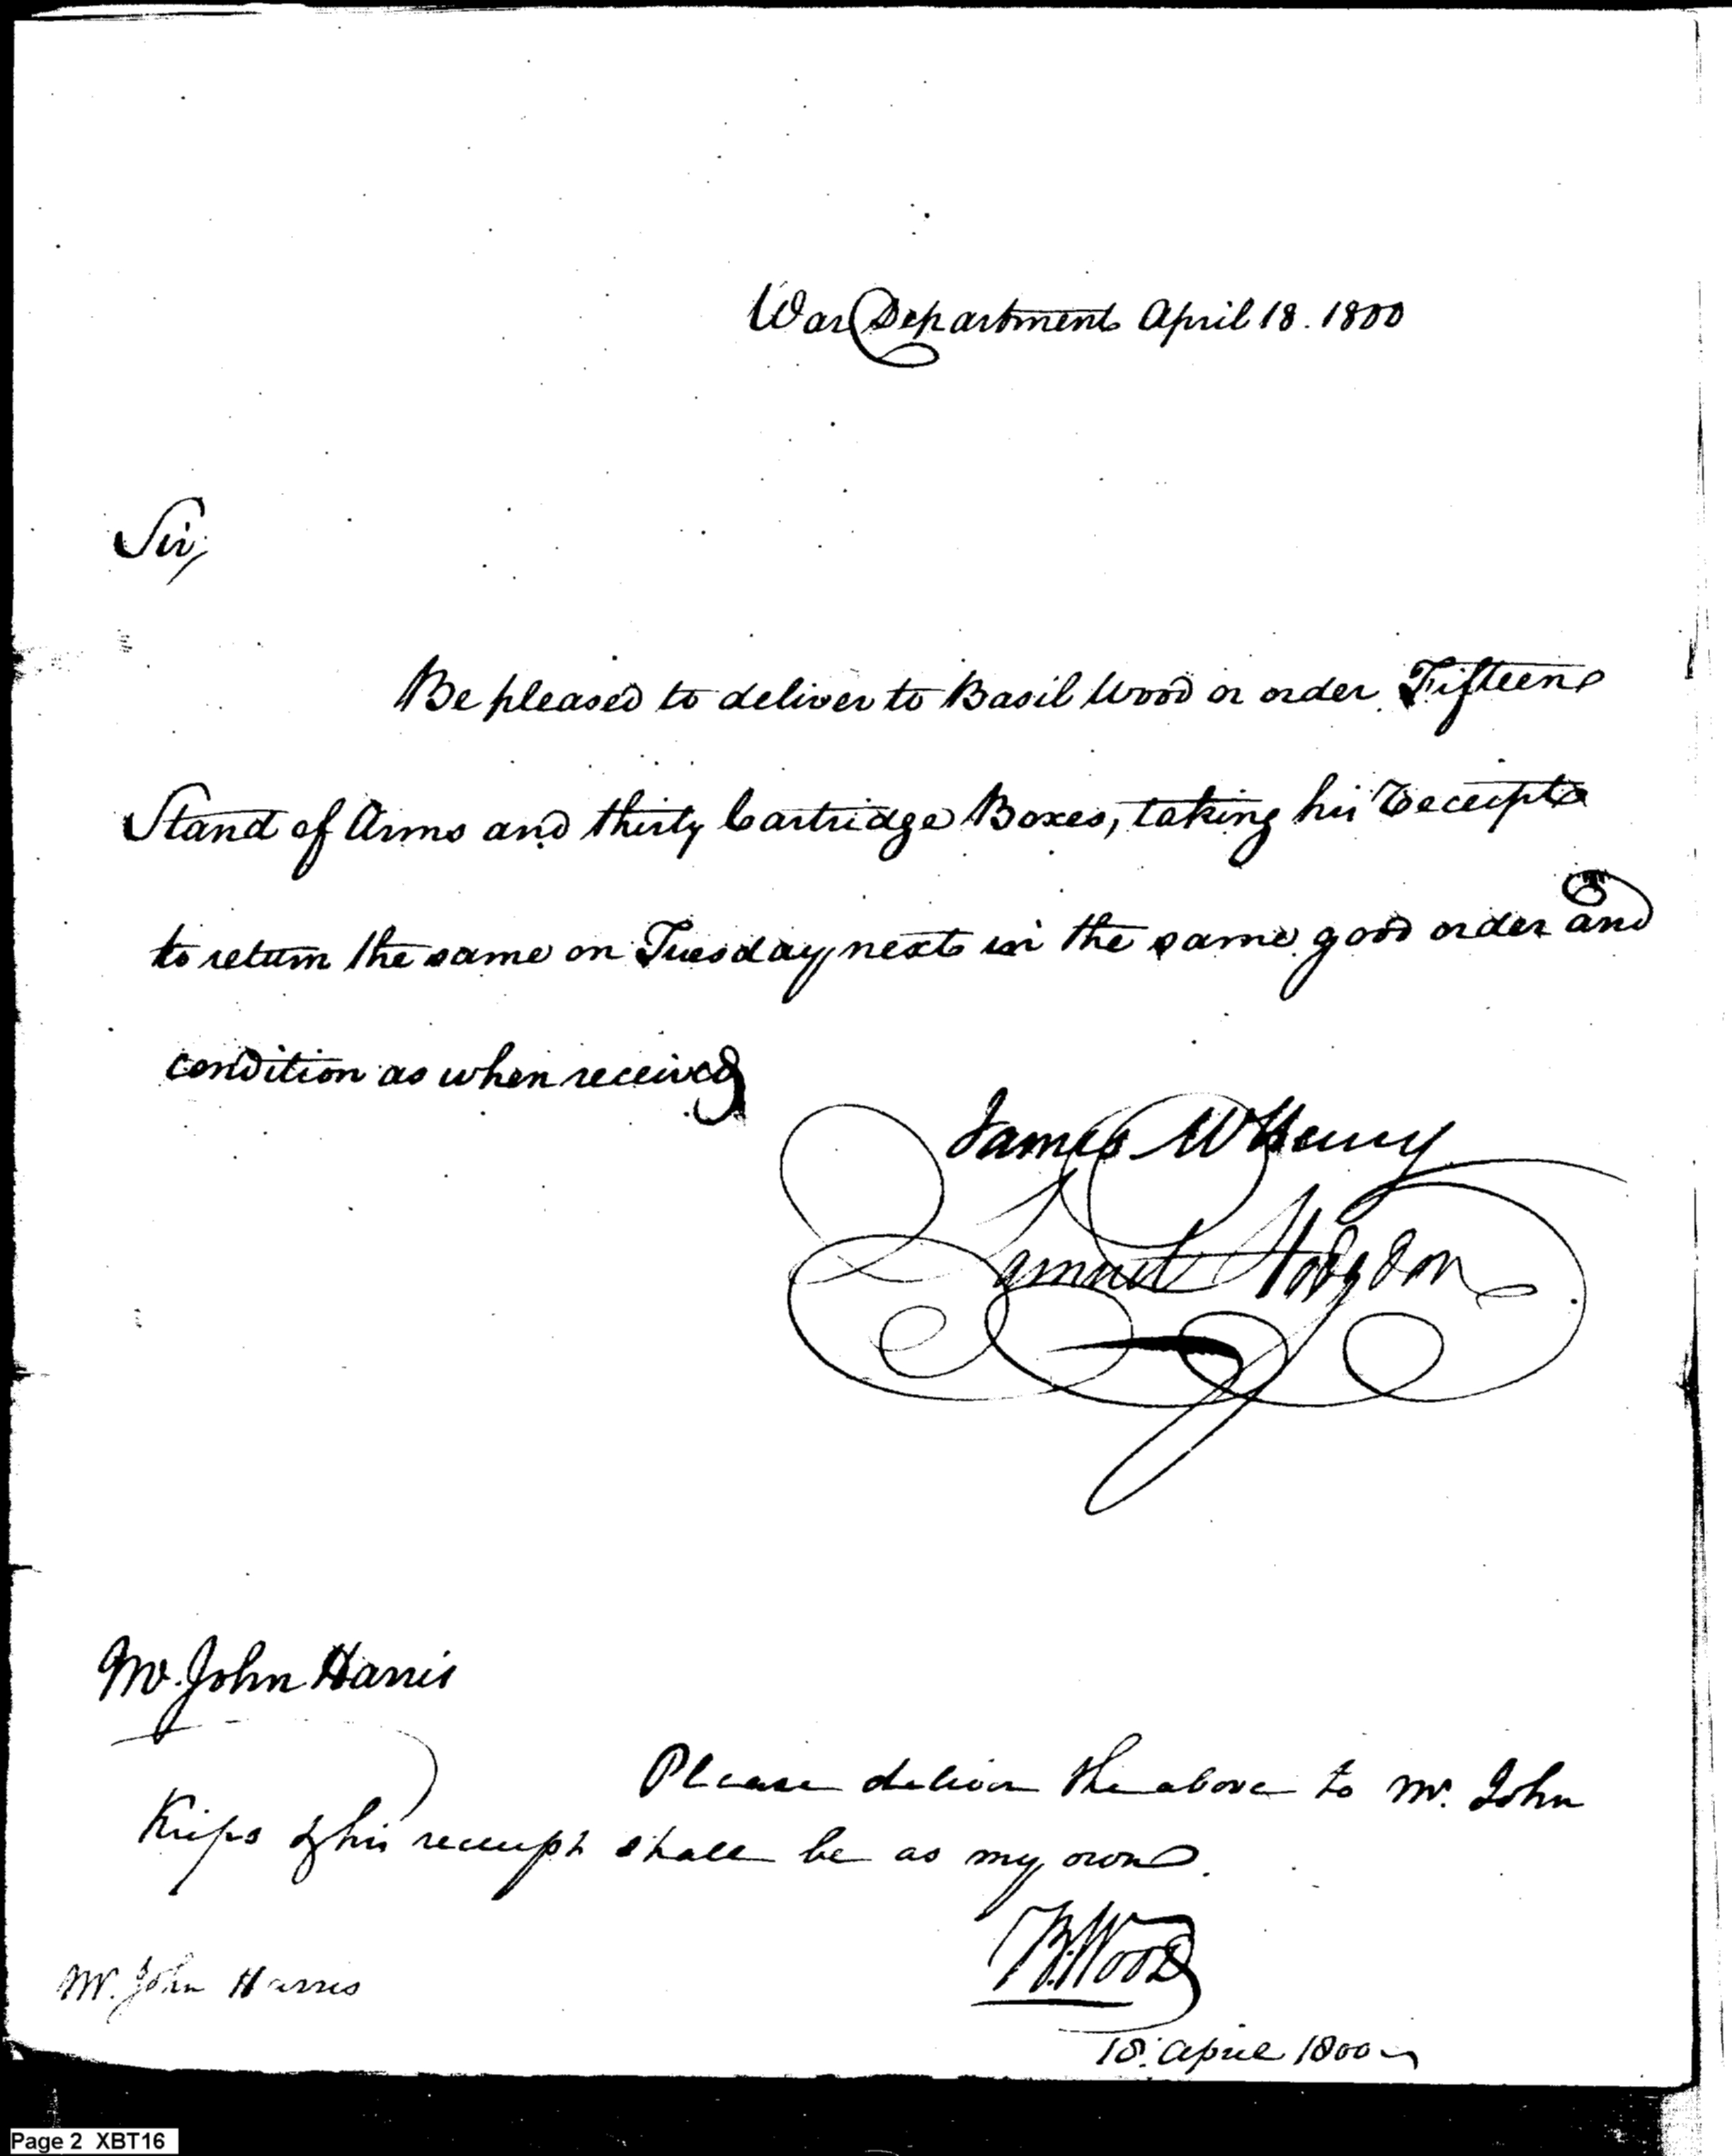 War Department April 18. 1800
Sir,
Be pleased to deliver to Basil Wood or order Fifteen
Stand of Arms and thirty Cartridge Boxes, taking his receipt
to return the same on Tuesday next in the same good order and
condition as when received
James McHenry
Samuel Hodgdon
Mr. John Harris
Please deliver the above to Mr. John
Krips & his receipt shall be as my own.
B. Wood
18. April 1800
Mr. John Harris
Page 2 XBT16